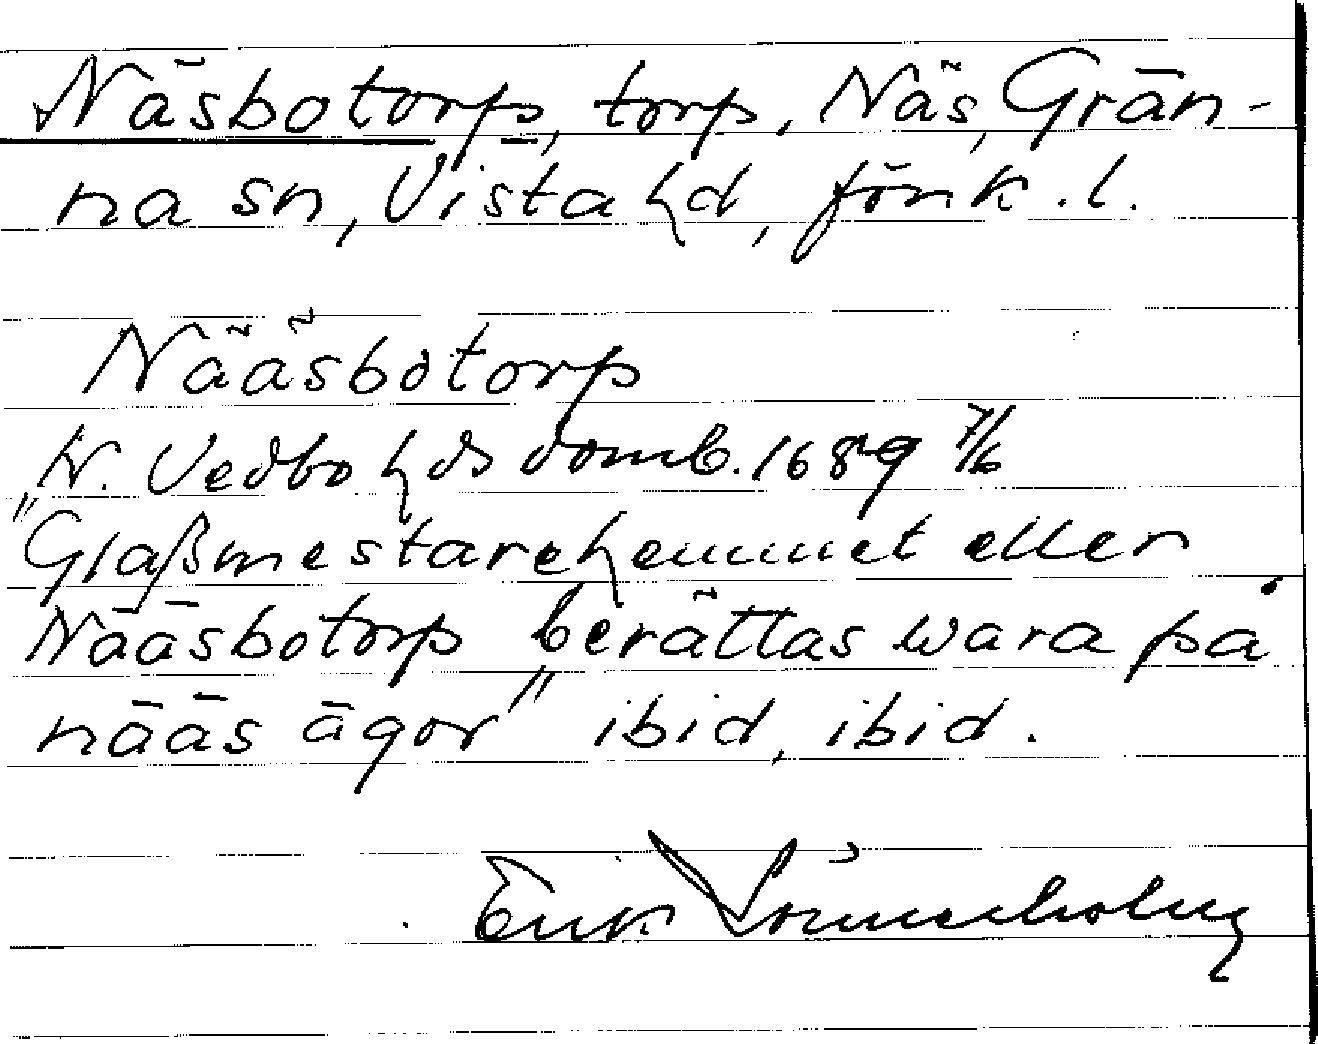 Näsbotorp, torp, Näs, Grän-
na sn, Vista hd, Jönk. l.
Nääsbotorp
N. Vedbo hds domb. 1689 7/6
"Glaßmestarehemmet eller
Nääsbotorp berättas wara på
nääs ägor" ibid, ibid.
Erik